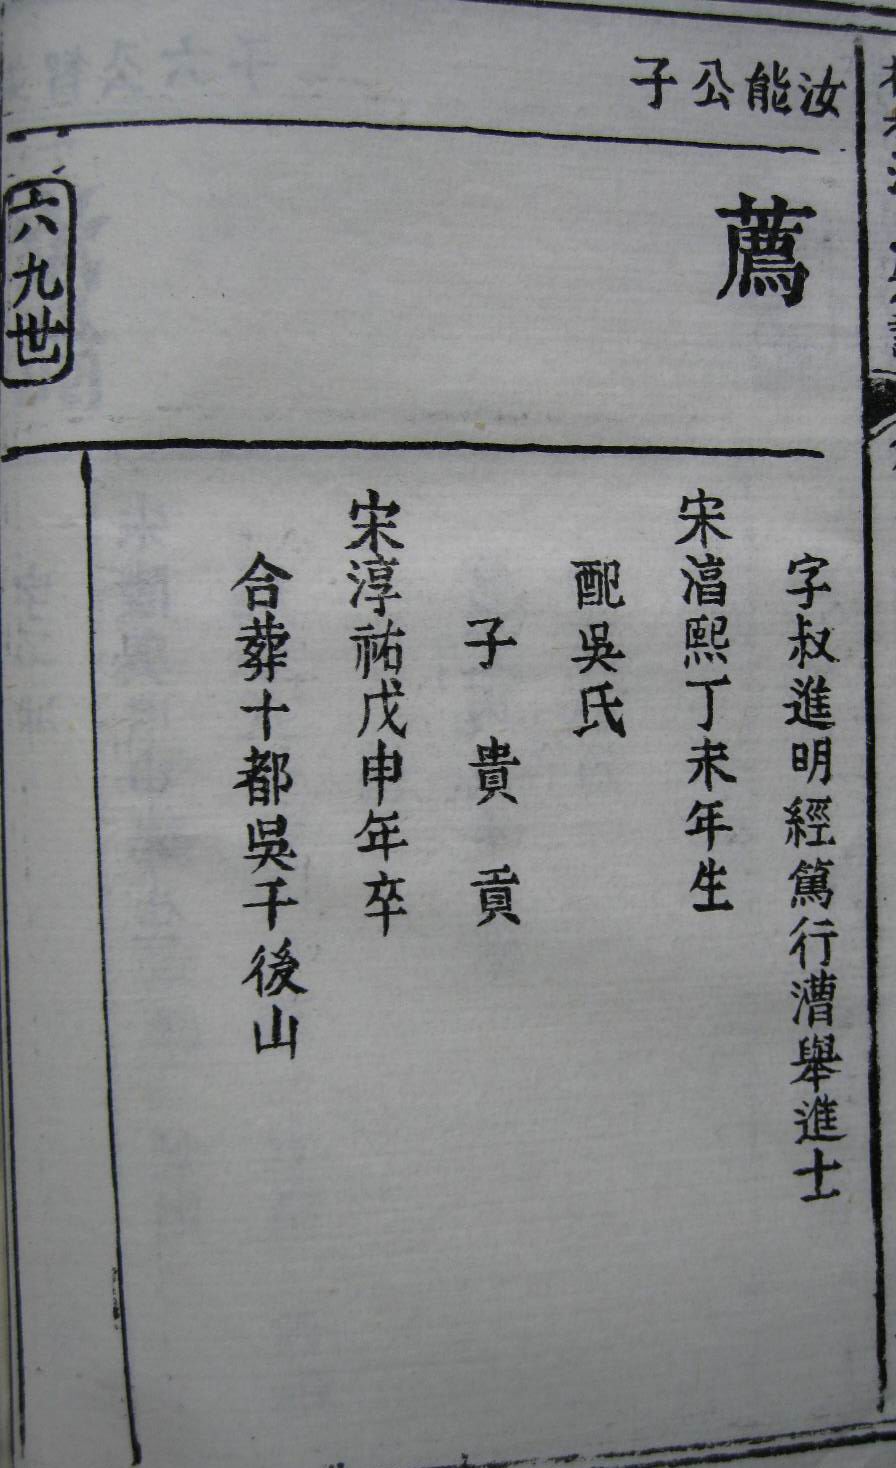 汝能公子
薦
字叔進明經篤行漕舉進士
宋湻熙丁未年生
配吳氏
子貴貢
宋淳祐戊申年卒
合葬十都吳干後山
六九世